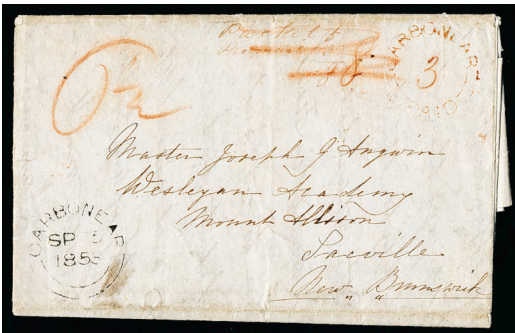 CARBONEAR
3
PAID
Master Joseph J Angwin
Wesleyan Academy
Mount Allison
Sacville
New Brunswick
CARBONEAR
SP
185